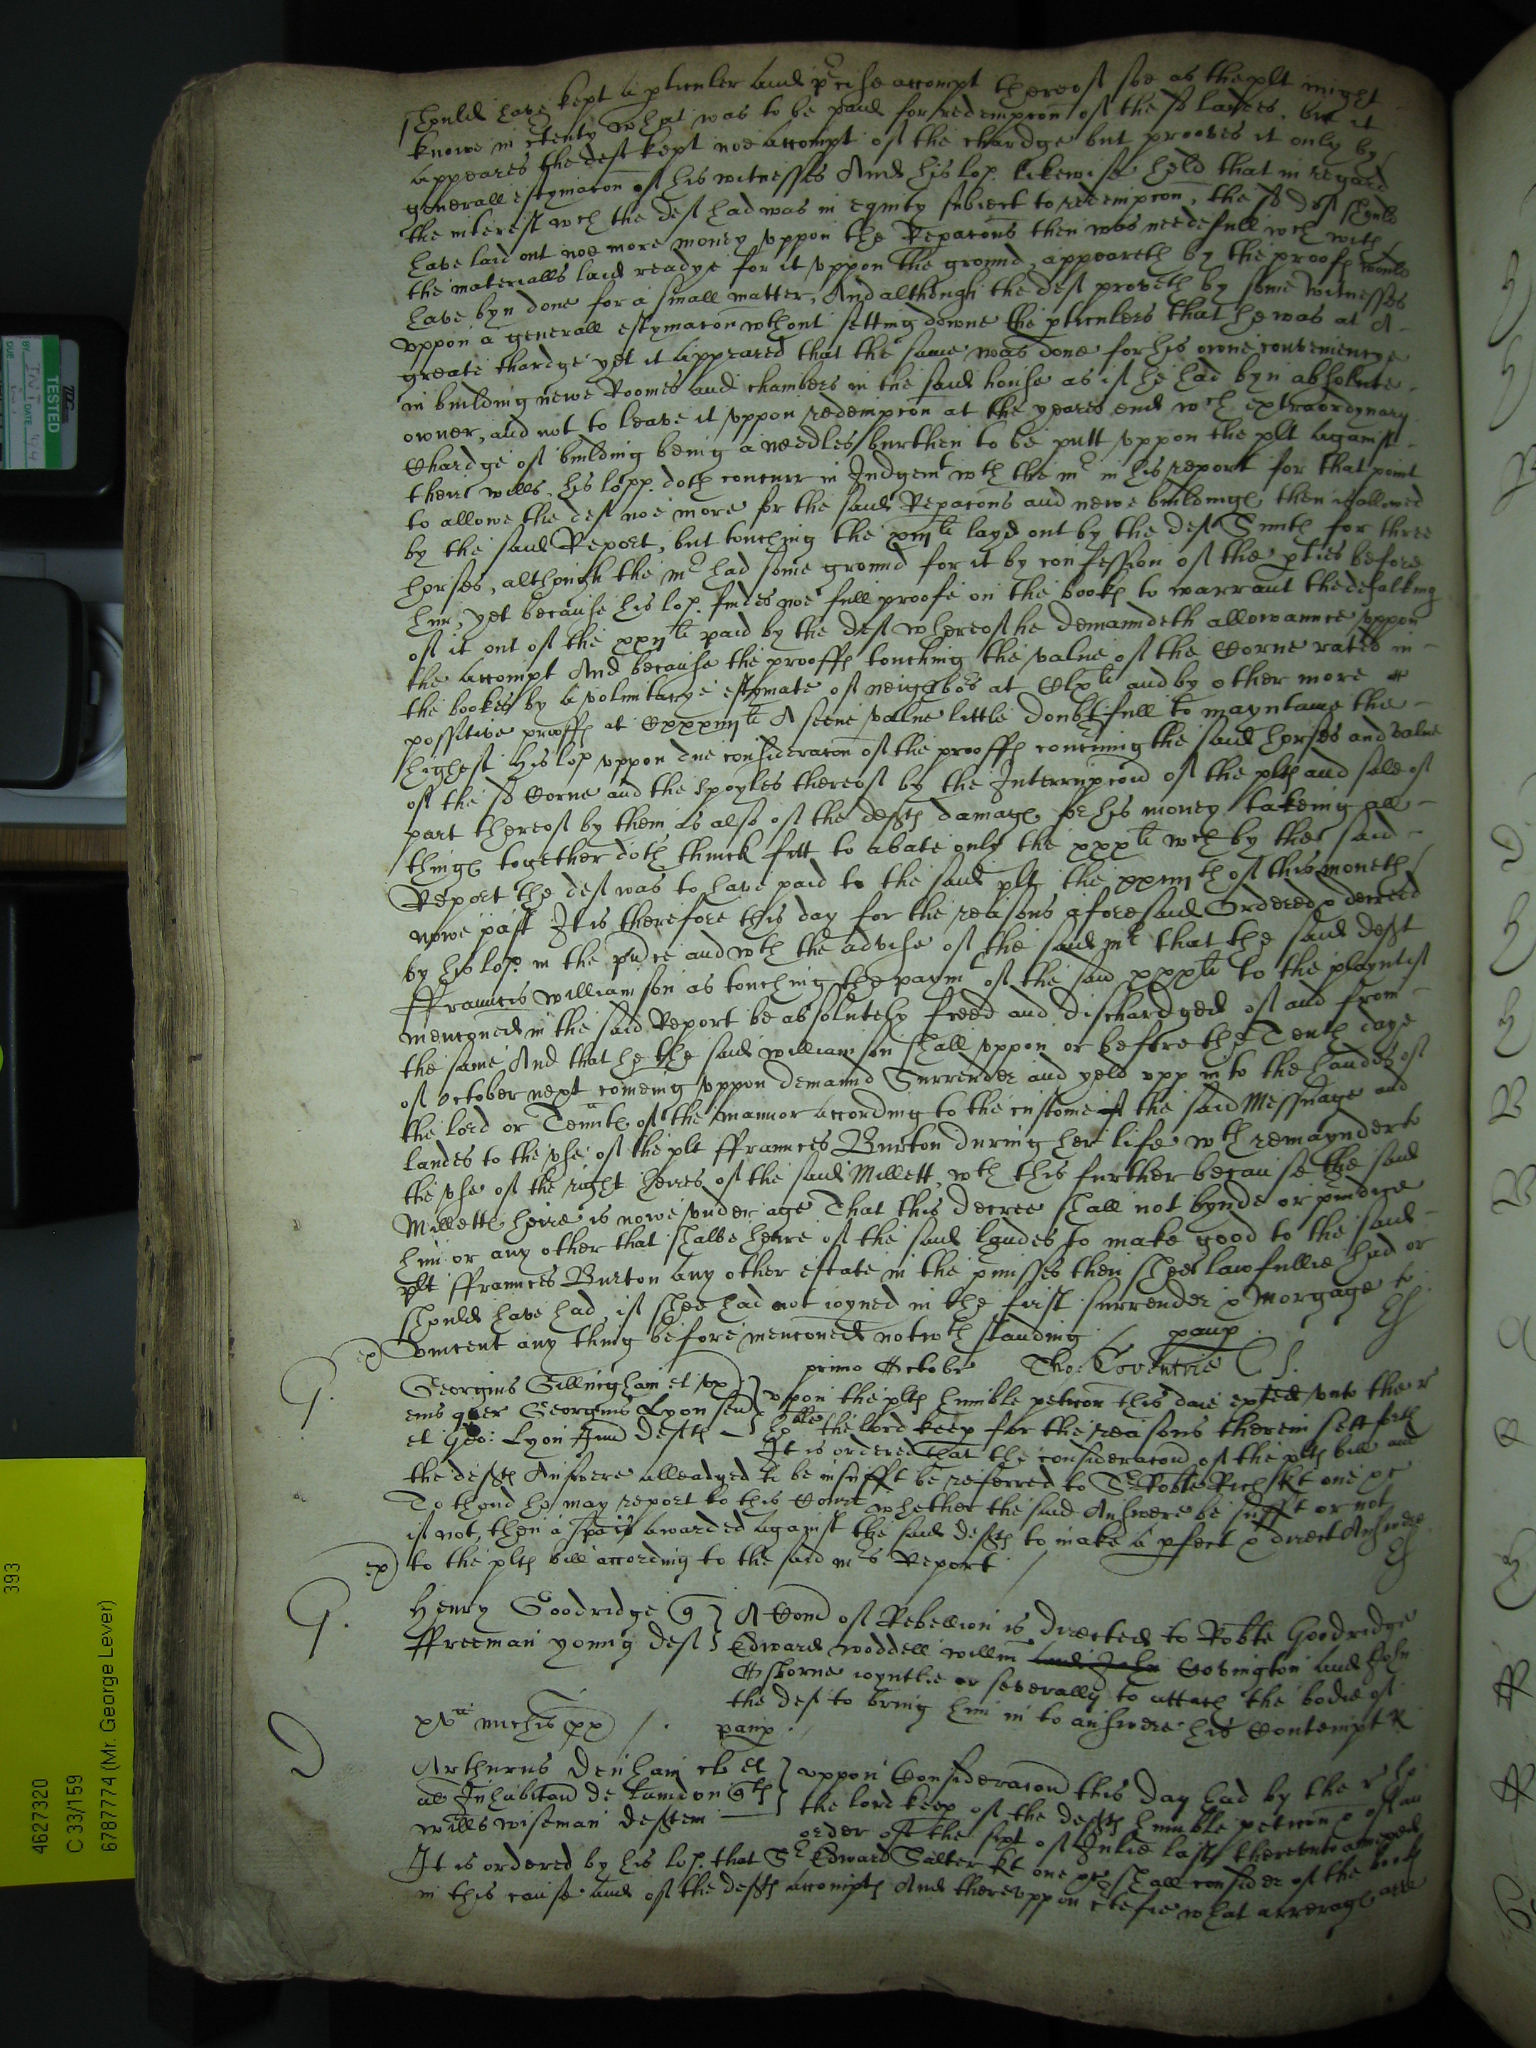 should have kept a pticuler and pcise accompt thereof soe as the plt might
knowe in cteinty what was to be paid for redempcon of the sd landes, but it
appeares the deft kept noe accompt of the chardge but prooves it only by
generall estymacon of his witnesses And his lop. likewise held that in regard
the interest wch the deft had was in equity subiect to redempcon, the sd deft should
have laid out noe more money uppon the Repacons then was needefull wch with
the materialls laid readye for it uppon the ground, appeareth by the proofes would
have byn done for a small matter, And although the deft proveth by some witnesses
uppon a generall estymacon wthout setting downe the pticulers that he was at A -
greate chardge yet it appeared that the same was done for his owne conveniencye
in building newe Roomes and chambers in the said house as if he had byn absolute -
owner, and not to leave it uppon redempcon at the yeares end wch extraordynary
Chardge of building being a needles burthen to be putt uppon the plt against -
their wills, his lopp. doth concurr in Judgemt wth the mr in his report for that point
to allowe the deft noe more for the said Repacons and newe buildinges then is allowed
by the said Report, but touching the layd out by the deft Smith for three
horses, although the mr had some ground for it by confession of the pties before
him, yet because his lop. findes noe full proofe in the bookes to warrant the defalking
of it out of the paid by the deft whereof he demaundeth allowaunce uppon
the accompt And because the prooffes touching the value of the Corne rated in -
the bookes by a voluntarye estymate of neighbors at Clxli and by other more
possitive prooffes at seeme value little doubtfull to mayntaine the -
highest His lop uppon due consideracon of the prooffes concerning the said horses and value
of the sd Corne and the spoyles thereof by the Interrupcon of the plts and sale of
part thereof by them as also of the defts damages for his money takeing all -
thinges together doth thinck fitt to abate only the xxxli wch by the said -
Report the deft was to have paid to the said plt the xxiiijth of this moneth
nowe past It is therefore this day for the reasons aforesaid Ordered & decreed
by his lop. in the pnce and wth the advise of the said mr that the said deft
ffrauncis williamson as touching the paymt of the said xxxli to the playntif
mencioned in the said Report be absolutely freed and dischardged of and from -
the same And that he the said williamson shall uppon or before the Tenth daye
of October next comeing uppon demaund Surrender and yeld upp into the handes of
the lord or Tennts of the mannor according to the custome of the said Messuage and
landes to the use of the plt ffraunces Burton during her life wth remaynder to
the use of the right heires of the said Millett, wth this further because the said
Milletts heire is nowe under age That this decree shall not bynde or piudice
him or any other that shalbe heire of the said landes to make good to the said -
plt ffraunces Burton any other estate in the pmisses then shee lawfullie had or
should have had if shee had not ioyned in the first surrender & morgage to
ex) Vincent any thing before mencioned notwth standing
primo Octobr Tho: Coventrie C S.
G. Georgius Gillingham et ux
eius quer Georgius Lyon sen
et Geo: Lyon Jun defts
uppon the plts humble peticon this daie exhited unto the r
hoble the lord keep for the reasons therein sett forth
It is ordered that the consideracon of the plts bill and
the defts Answere alleadged to be insufft be referred to Sr Robte Rich kt one &c
To thend he may report to this Court whether the said Answere be sufft or not
if not, then a spa is awarded against the said defts to make a pfect & direct Answere
ex) to the plts bill according to the said mrs Report
G. Henry Goodridge q
ffreeman young deft
A Com of Rebellion is directed to Robte Goodridge
Edward woddell willm Covington and John
Osborne ioyntlie or severally to attach the bodie of
the deft to bring him in to answere his Contempt
xvne michis px)
D Arthurus Denham ar et
al Inhabitan de qts
wills wiseman deftem
uppon Consideracon this day had by the r ho
the lord keep of the defts humble peticon & of an
order of the first of Julie last thereunto annexed
It is ordered by his lop. that Sr Edward Salter kt one &c shall consider of the bookes
in this cause and of the defts accompts And thereuppon ctefie what arrerages are
TESTED
DUE
DATE
393
4627320
C 33/159
6787774 (Mr. George Lever)